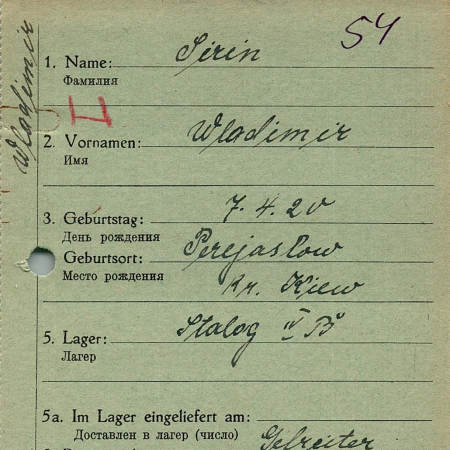 54
Wladimir
1. Name: Sirin
Фамилия
2. Vornamen: Wladimir
Имя
3. Geburtstag: 7.4.20
День рождения
Geburtsort: Perejaslow
Место рождения
Kr. Kiew
5. Lager: Stalag IV B
Лагерь
5a. Im Lager eingeliefert am:
Доставлен в лагер (число)
Gefreiter